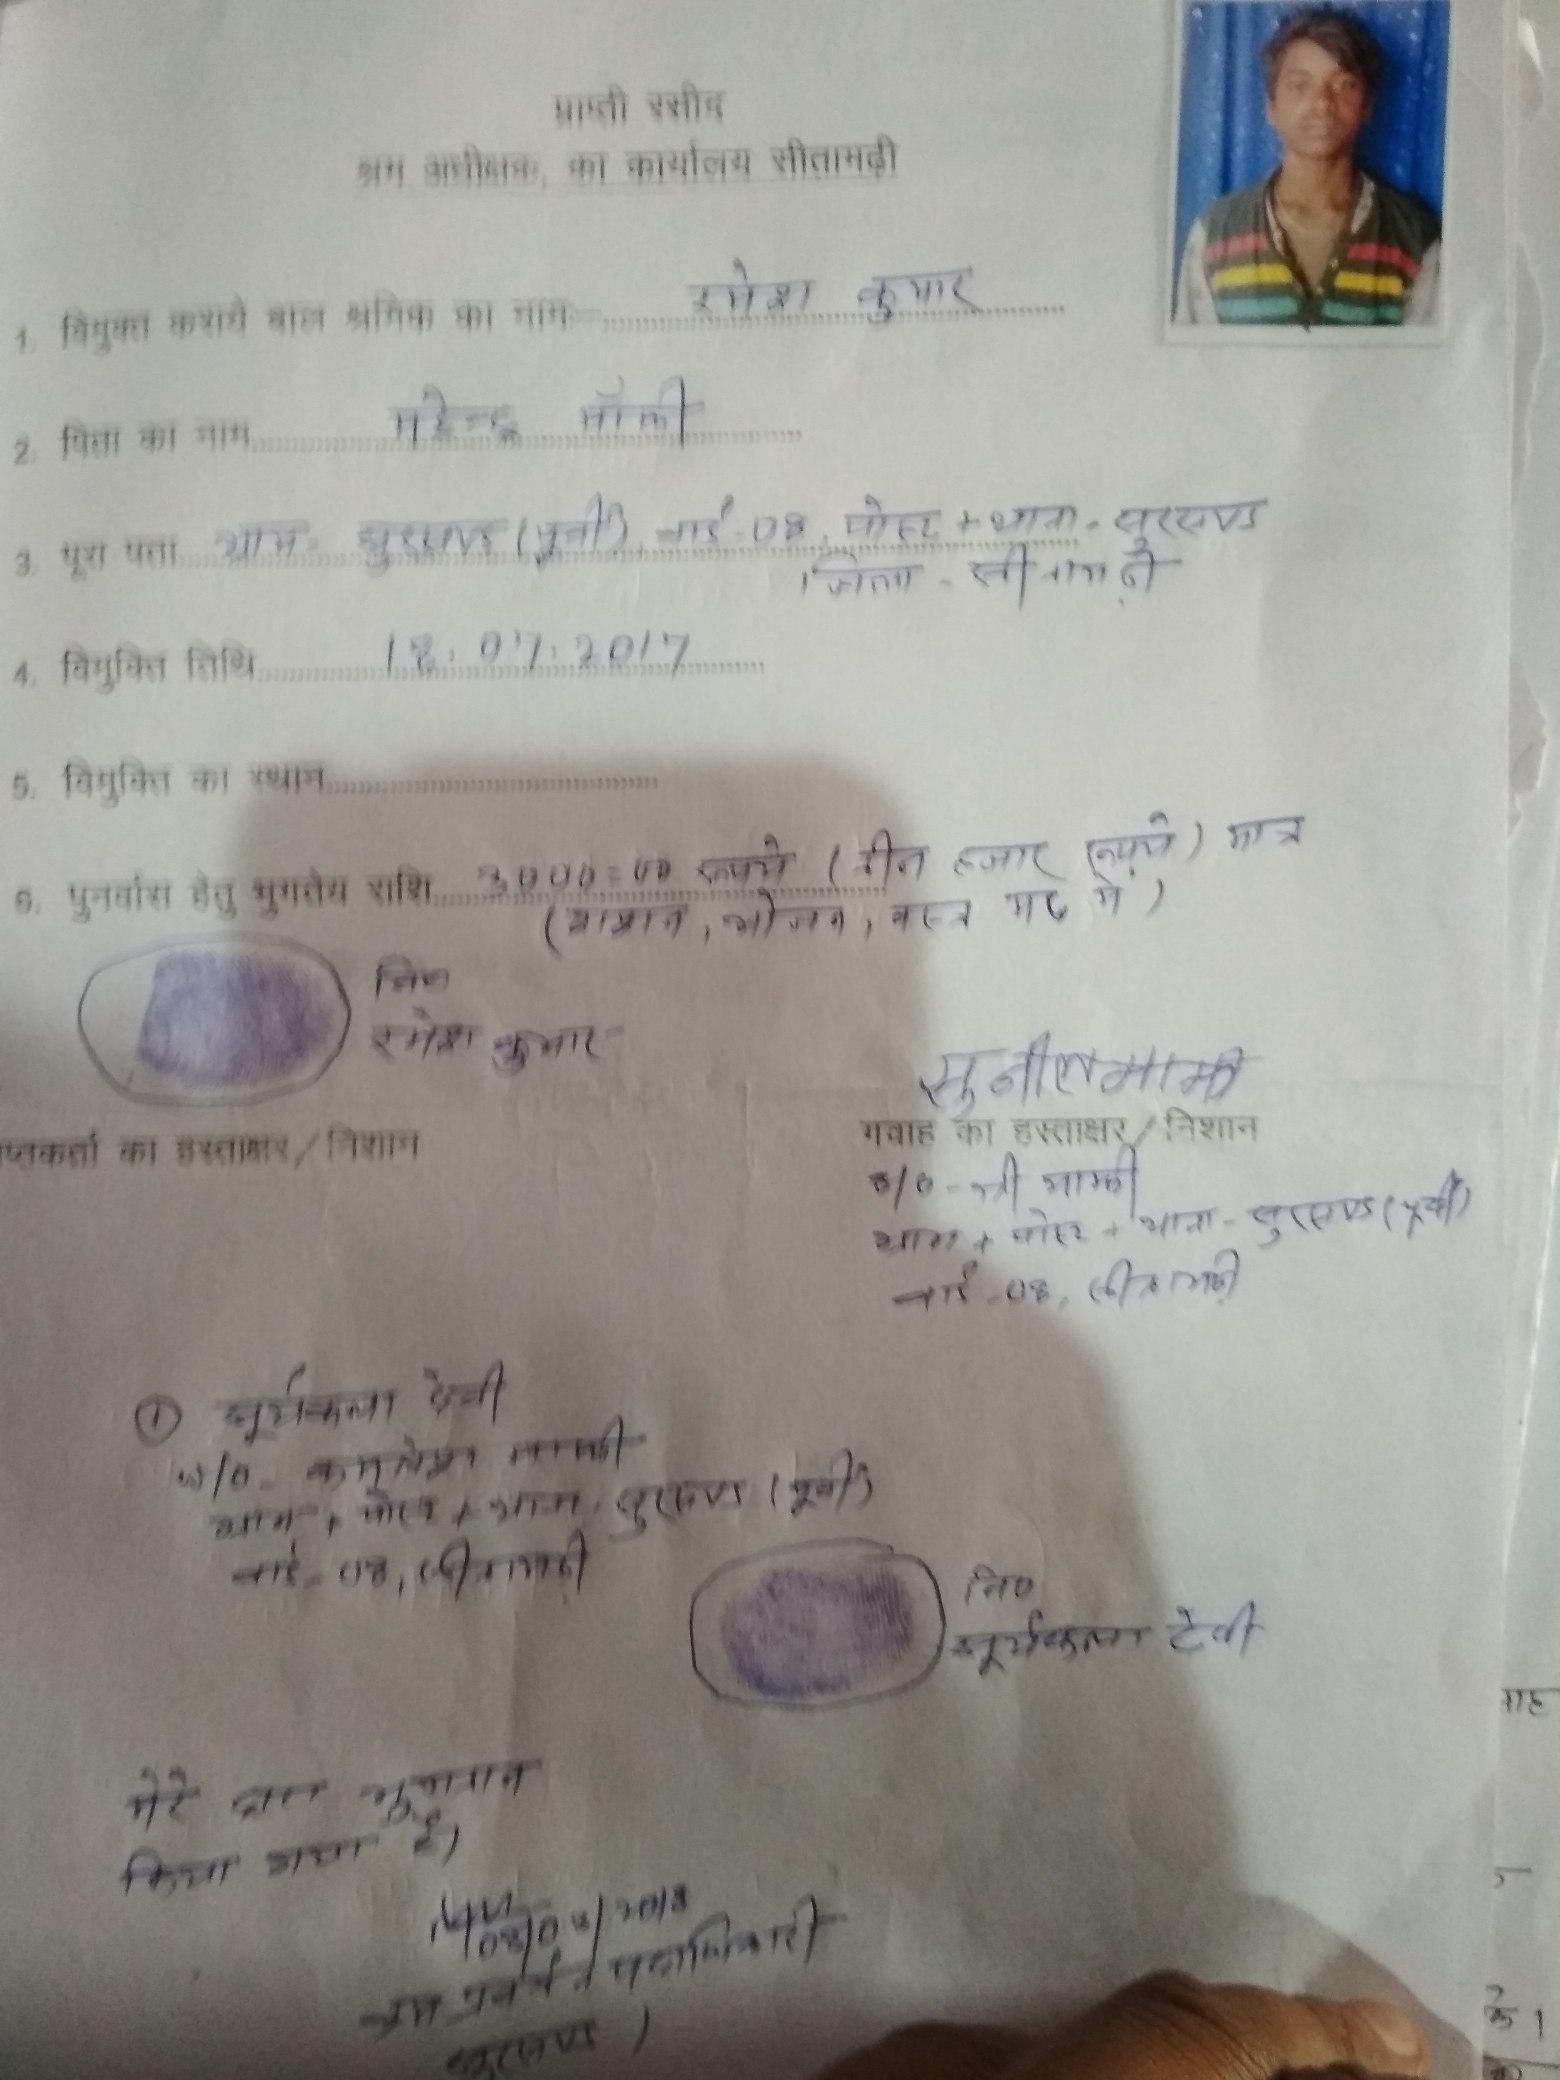 प्राप्ती रसीद
श्रम अधीक्षक, का कार्यालय सीतामढ़ी
1. विमुक्त कराये बाल श्रमिक का नामः रमेश कुमार
2. पिता का नाम महेन्द्र माँझी
3. पूरा पता ग्राम- सुरसण्ड (पूर्वी), वार्ड-08, पोस्ट + थाना- सुरसण्ड
जिला - सीतामढ़ी
4. विमुक्ति तिथि 18.07.2017
5. विमुक्ति का स्थान
6. पुनर्वास हेतु भुगतेय राशि 3000=00 रूपये (तीन हजार रूपये) मात्र
(राशन, भोजन, वस्त्र मद में)
नि०
रमेश कुमार
सुनील माझी
प्तकर्ता का हस्ताक्षर/निशान
गवाह का हस्ताक्षर/निशान
माझी
ग्राम + पोस्ट + थाना- सुरसण्ड (पूर्वी)
वार्ड-08, सीतामढ़ी
① सूर्यकला देवी
w/o- माझी
ग्राम + पोस्ट + थाना- सुरसण्ड (पूर्वी)
वार्ड-08, सीतामढ़ी
नि०
सूर्यकला देवी
मेरे द्वारा भुगतान
किया गया है।
श्रम प्रवर्तन पदाधिकारी
सुरसण्ड